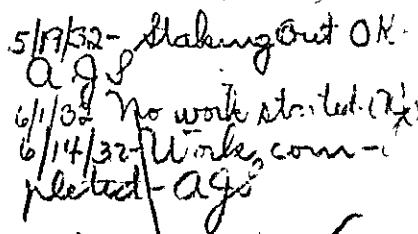 5/19/32- Staking Out OK.
A G S
6/1/32 No work started.
6/14/32- Work com-
pleted - AGS